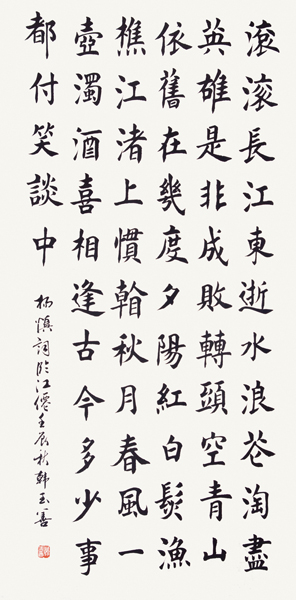 滚滚長江東逝水浪花淘盡
英雄是非成敗轉頭空青山
依舊在幾度夕陽紅白髮漁
樵江渚上慣看秋月春風一
壺濁酒喜相逢古今多少事
都付笑談中
杨慎詞临江僊壬辰秋韩玉善